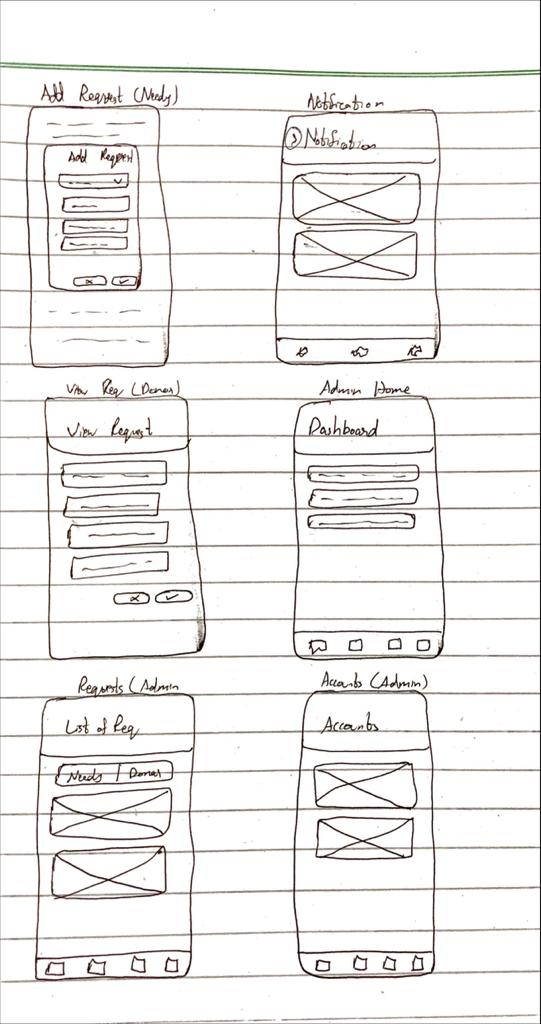 Add Request (Needy)
Add Request
Notification
Notification
View Req (Donor)
View Request
Admin Home
Dashboard
Requests (Admin
List of Req
Needy | Donor
Accounts (Admin)
Accounts